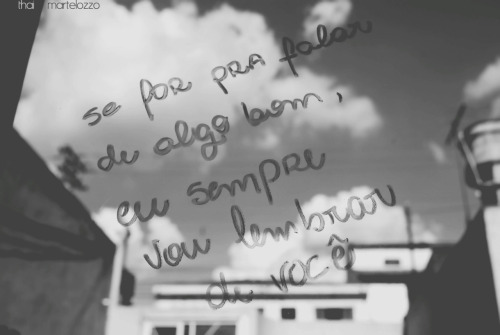 thai martelozzo
se for pra falar
de algo bom,
eu sempre
vou lembrar
de você